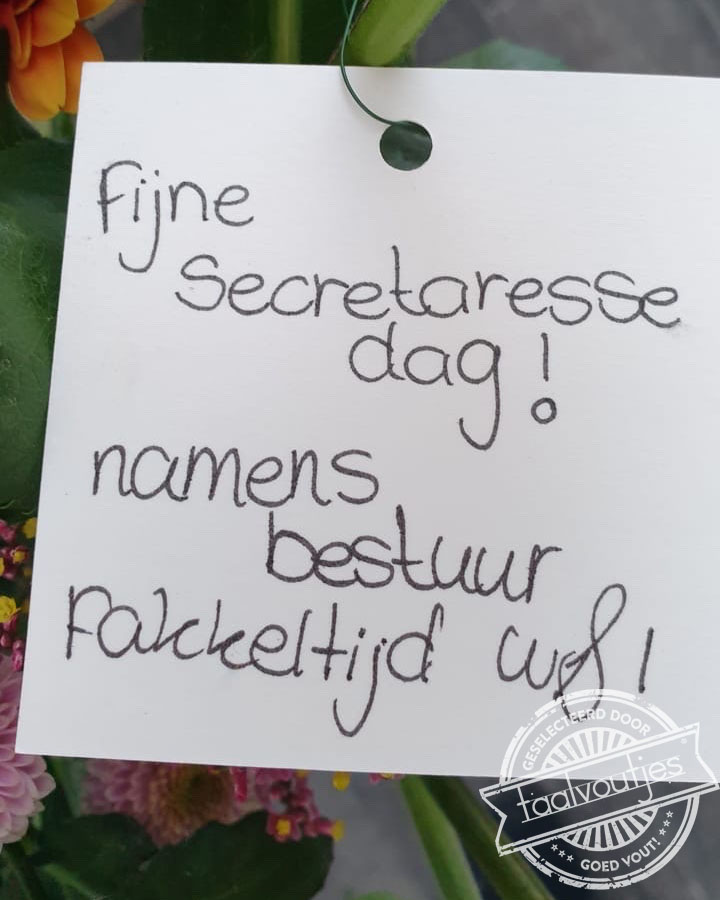 fijne
secretaresse
dag!
namens
bestuur
Fakkeltijd
GESELECTEERD DOOR
taalvoutjes
GOED VOUT!